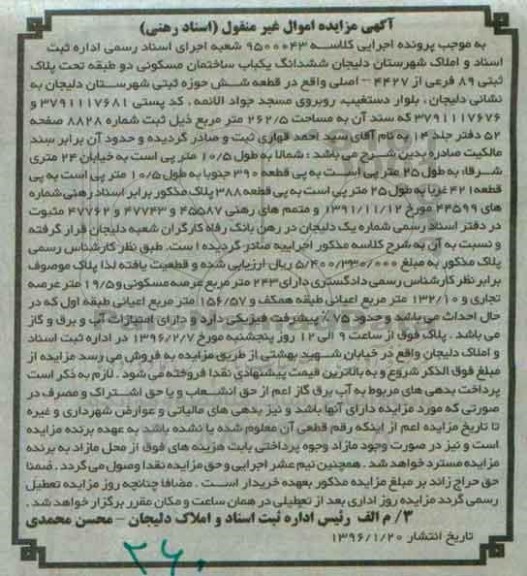 آگهی مزایده اموال غیر منقول (اسناد رهنی)
به موجب پرونده اجرایی کلاسه ۹۵۰۰۰۴۳ شعبه اجرای اسناد رسمی اداره ثبت
اسناد و املاک شهرستان دلیجان ششدانگ یکباب ساختمان مسکونی دو طبقه تحت پلاک
ثبتی ۸۹ فرعی از ۴۴۲۷ – اصلی واقع در قطعه شش حوزه ثبتی شهرستان دلیجان به
نشانی دلیجان ، بلوار دستغیب، روبروی مسجد جواد الائمه ، کد پستی ۳۷۹۱۱۱۷۶۸۱ و
۳۷۹۱۱۱۷۶۷۶ که سند آن به مساحت ۲۶۲/۵ متر مربع ذیل ثبت شماره ۸۸۲۸ صفحه
۵۲ دفتر جلد ۱۴ به نام آقای سید احمد قهاری ثبت و صادر گردیده و حدود آن برابر سند
مالکیت صادره بدین شرح می باشد : شمالا به طول ۱۰/۵ متر پی است به خیابان ۲۴ متری
شرقا، به طول ۲۵ متر پی است به پی قطعه ۳۹۰ جنوبا به طول ۱۰/۵ متر پی است به پی
قطعه ۴۲۱ غربا به طول ۲۵ متر پی است به پی قطعه ۳۸۸ پلاک مذکور برابر اسناد رهنی شماره
های ۴۴۵۹۹ مورخ ۱۳۹۱/۱۱/۱۲ و متمم های رهنی ۴۵۵۸۷ و ۴۷۷۴۳ و ۴۷۷۶۲ مثبوت
در دفتر اسناد رسمی شماره یک دلیجان در رهن بانک رفاه کارگران شعبه دلیجان قرار گرفته
و نسبت به آن به شرح کلاسه مذکور اجراییه صادر گردیده است. طبق نظر کارشناس رسمی
پلاک مذکور به مبلغ ۵/۴۰۰/۳۳۰/۰۰۰ ریال ارزیابی شده و قطعیت یافته لذا پلاک موصوف
برابر نظر کارشناس رسمی دادگستری دارای ۲۴۳ متر مربع عرصه مسکونی و ۱۹/۵ متر عرصه
تجاری و ۱۳۲/۱۰ متر مربع اعیانی طبقه همکف و ۱۵۶/۵۷ متر مربع اعیانی طبقه اول که در
حال احداث می باشد و حدود ۷۵٪ پیشرفت فیزیکی دارد و دارای امتیازات آب و برق و گاز
می باشد . پلاک فوق از ساعت ۹ الی ۱۲ روز پنجشنبه مورخ ۱۳۹۶/۲/۷ در اداره ثبت اسناد
و املاک دلیجان واقع در خیابان شهید بهشتی از طریق مزایده به فروش می رسد مزایده از
مبلغ فوق الذکر شروع و به بالاترین قیمت پیشنهادی نقدا فروخته می شود . لازم به ذکر است
پرداخت بدهی های مربوط به آب برق گاز اعم از حق انشعاب و یا حق اشتراک و مصرف در
صورتی که مورد مزایده دارای آنها باشد و نیز بدهی های مالیاتی و عوارض شهرداری و غیره
تا تاریخ مزایده اعم از اینکه رقم قطعی آن معلوم شده یا نشده باشد به عهده برنده مزایده
است و نیز در صورت وجود مازاد وجوه پرداختی بابت هزینه های فوق از محل مازاد به برنده
مزایده مسترد خواهد شد . همچنین نیم عشر اجرایی و حق مزایده نقدا وصول می گردد . ضمنا
حق حراج زائد بر مبلغ مزایده مذکور بعهده خریدار است . مضافا چنانچه روز مزایده تعطیل
رسمی گردد مزایده روز اداری بعد از تعطیلی در همان ساعت و مکان مقرر برگزار خواهد شد .
۳/ م الف رئیس اداره ثبت اسناد و املاک دلیجان – محسن محمدی
تاریخ انتشار ۱۳۹۶/۱/۲۰
۲۶۰